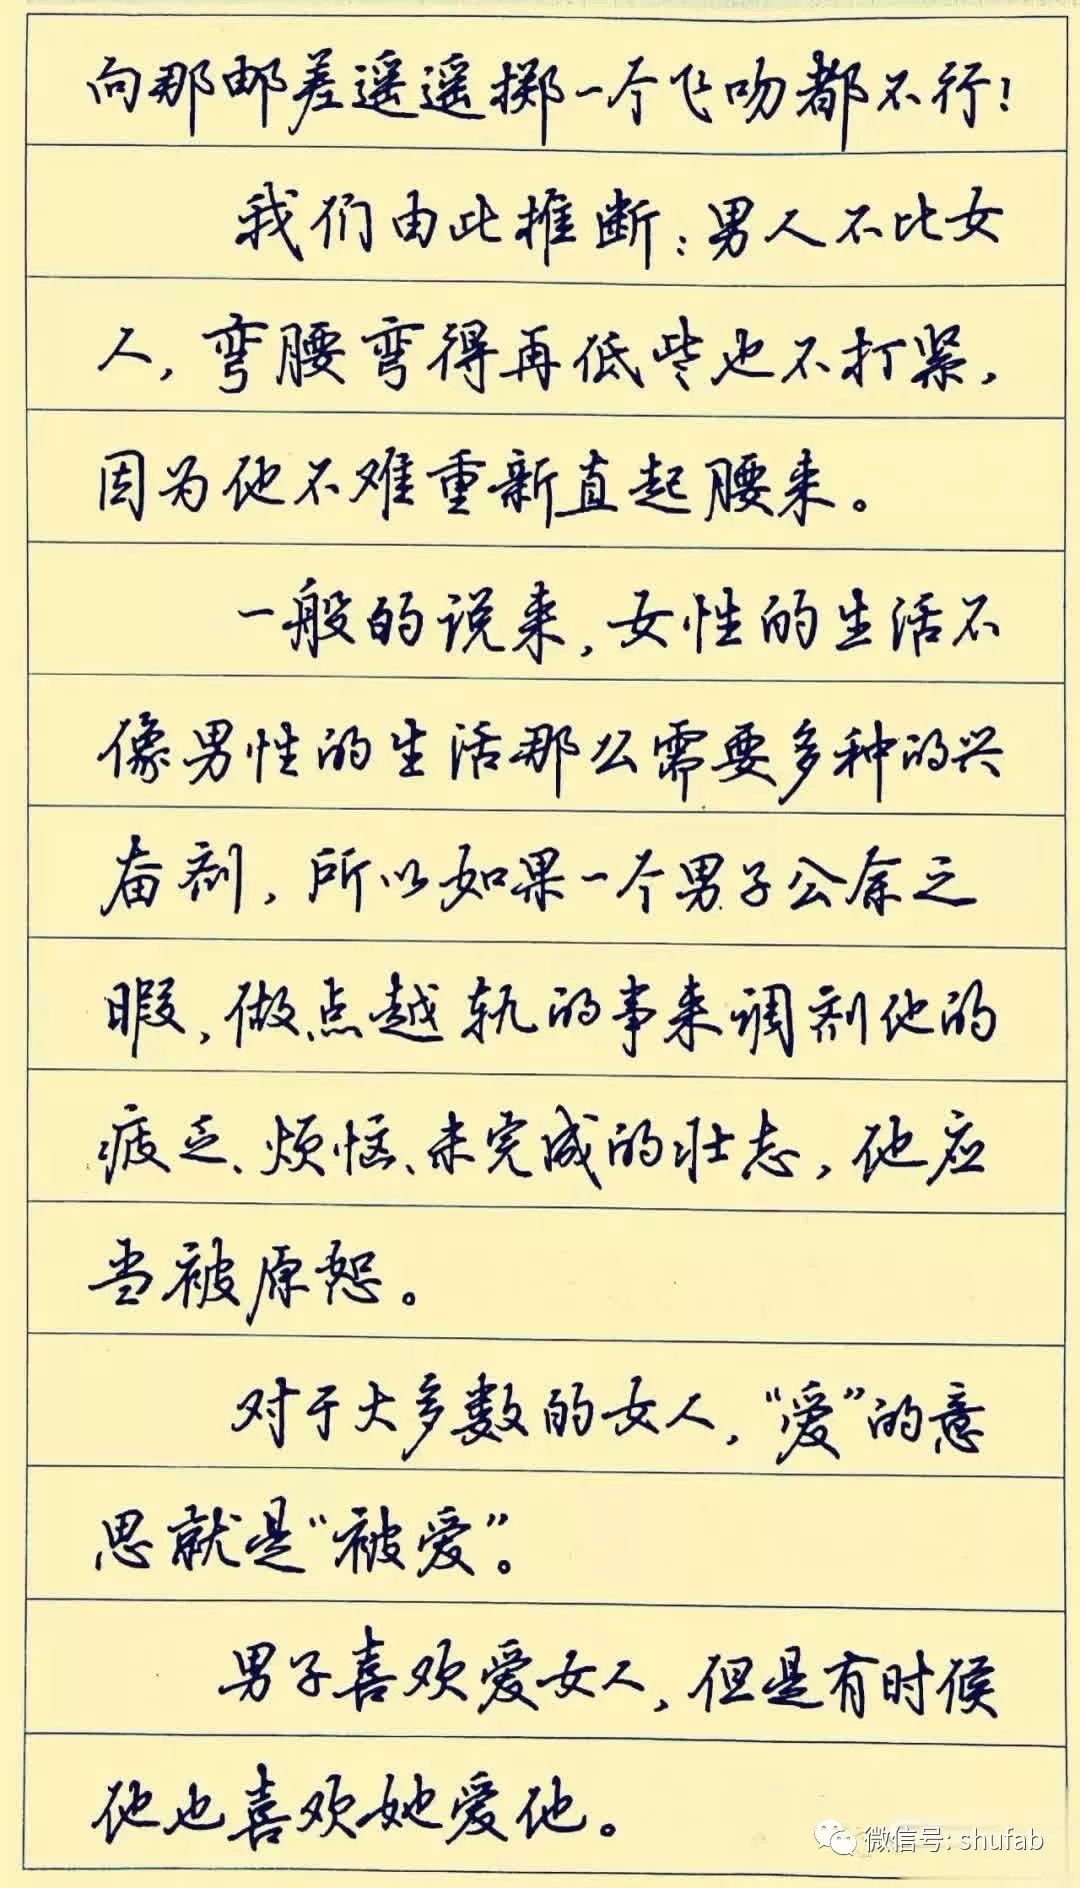 向那邮差遥遥掷一个飞吻都不行！
我们由此推断：男人不比女
人，弯腰弯得再低些也不打紧，
因为他不难重新直起腰来。
一般的说来，女性的生活不
像男性的生活那么需要多种的兴
奋剂，所以如果一个男子公余之
暇，做点越轨的事来调剂他的
疲乏、烦恼、未完成的壮志，他应
当被原恕。
对于大多数的女人，“爱”的意
思就是“被爱”。
男子喜欢爱女人，但是有时候
他也喜欢她爱他。
微信号: shufab